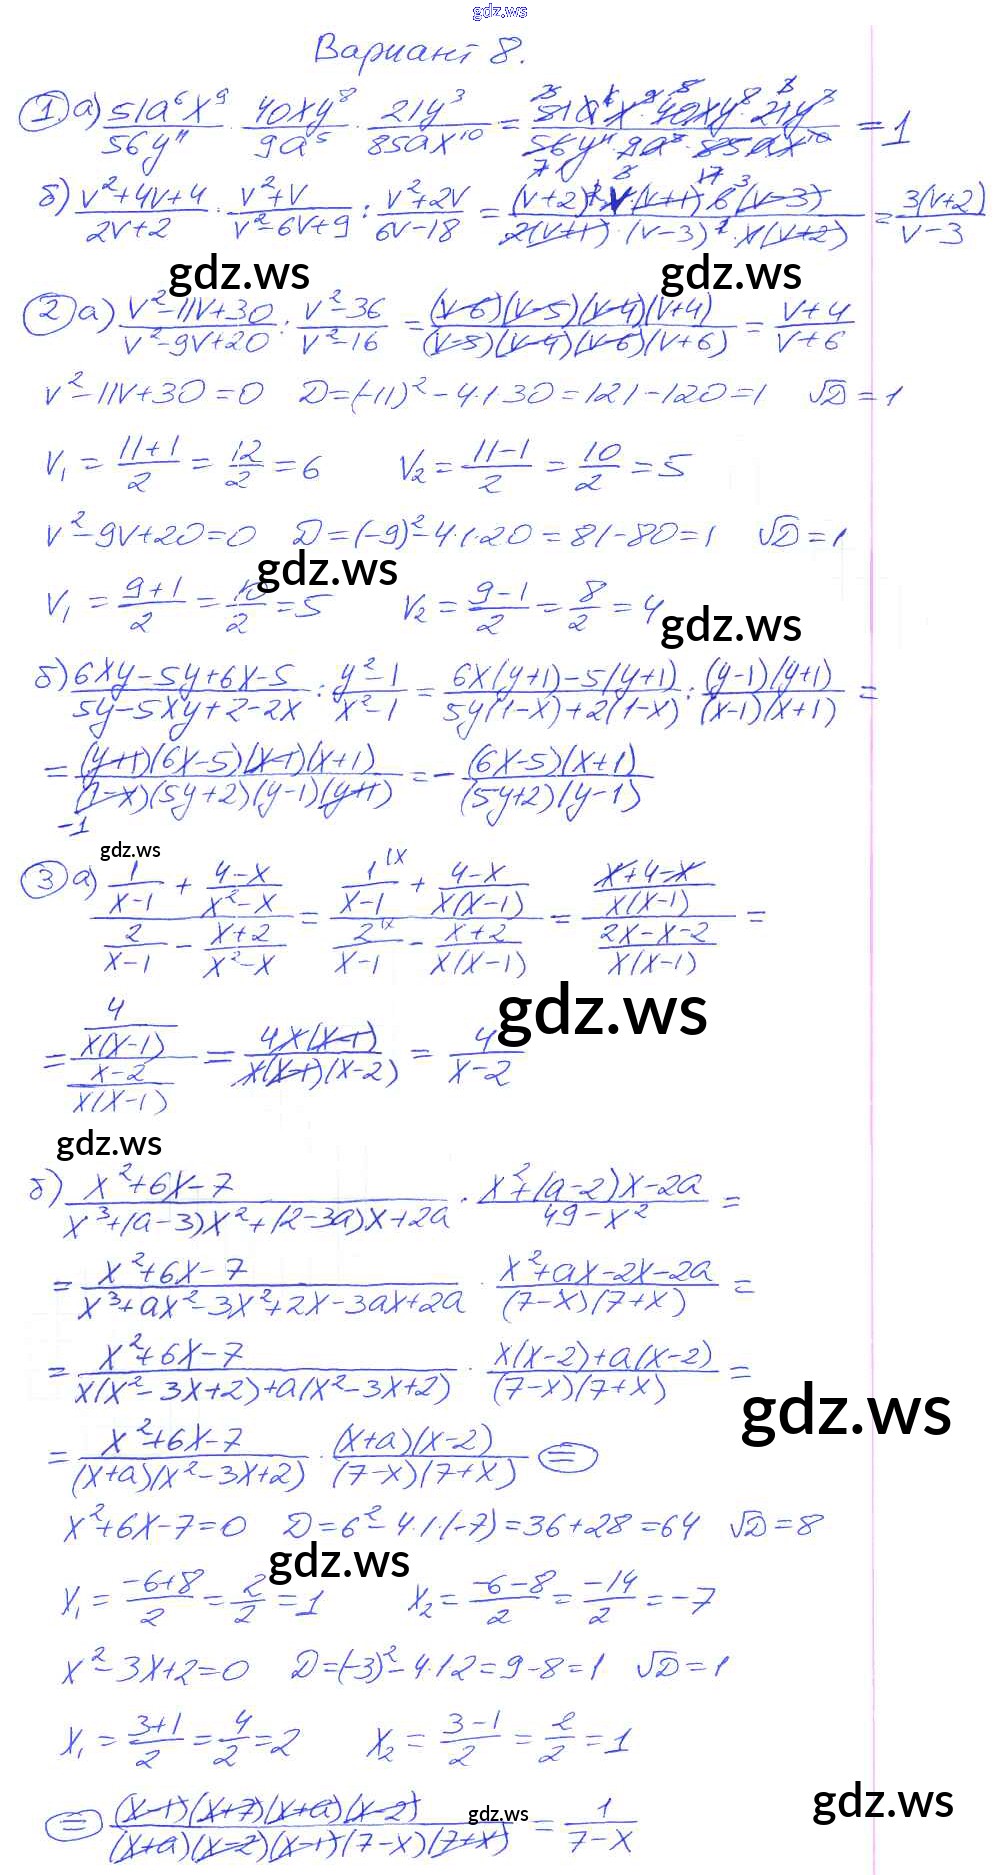 gdz.ws
Вариант 8.
① а) 51a⁶x⁹/56y¹¹ · 40xy⁸/9a⁵ · 21y³/85ax¹⁰ = 51a⁶x⁹·40xy⁸·21y³/56y¹¹·9a⁵·85ax¹⁰ = 1
б) v²+4v+4/2v+2 · v²+v/v²-6v+9 : v²+2v/6v-18 = (v+2)²·v(v+1)·6(v-3)/2(v+1)·(v-3)²·v(v+2) = 3(v+2)/v-3
gdz.ws gdz.ws
② а) v²-11v+30/v²-9v+20 : v²-36/v²-16 = (v-6)(v-5)(v-4)(v+4)/(v-5)(v-4)(v-6)(v+6) = v+4/v+6
v²-11v+30=0 D=(-11)²-4·1·30=121-120=1 √D=1
v₁ = 11+1/2 = 12/2 = 6 v₂ = 11-1/2 = 10/2 = 5
v²-9v+20=0 D=(-9)²-4·1·20=81-80=1 √D=1
gdz.ws
v₁ = 9+1/2 = 10/2 = 5 v₂ = 9-1/2 = 8/2 = 4
gdz.ws
б) 6xy-5y+6x-5/5y-5xy+2-2x : y²-1/x²-1 = 6x(y+1)-5(y+1)/5y(1-x)+2(1-x) : (y-1)(y+1)/(x-1)(x+1) =
= (y+1)(6x-5)(x-1)(x+1)/(1-x)(5y+2)(y-1)(y+1) = - (6x-5)(x+1)/(5y+2)(y-1)
-1
gdz.ws
③ а) (1/x-1 + 4-x/x²-x)/(2/x-1 - x+2/x²-x) = (1\x/x-1 + 4-x/x(x-1))/(2\x/x-1 - x+2/x(x-1)) = (x+4-x/x(x-1))/(2x-x-2/x(x-1)) =
gdz.ws
= (4/x(x-1))/(x-2/x(x-1)) = 4x(x-1)/x(x-1)(x-2) = 4/x-2
gdz.ws
б) x²+6x-7/x³+(a-3)x²+(2-3a)x+2a · x²+(a-2)x-2a/49-x² =
= x²+6x-7/x³+ax²-3x²+2x-3ax+2a · x²+ax-2x-2a/(7-x)(7+x) =
= x²+6x-7/x(x²-3x+2)+a(x²-3x+2) · x(x-2)+a(x-2)/(7-x)(7+x) =
gdz.ws
= x²+6x-7/(x+a)(x²-3x+2) · (x+a)(x-2)/(7-x)(7+x) =
x²+6x-7=0 D=6²-4·1·(-7)=36+28=64 √D=8
gdz.ws
x₁ = -6+8/2 = 2/2 = 1 x₂ = -6-8/2 = -14/2 = -7
x²-3x+2=0 D=(-3)²-4·1·2=9-8=1 √D=1
x₁ = 3+1/2 = 4/2 = 2 x₂ = 3-1/2 = 2/2 = 1
gdz.ws gdz.ws
= (x-1)(x+7)(x+a)(x-2)/(x+a)(x-2)(x-1)(7-x)(7+x) = 1/7-x